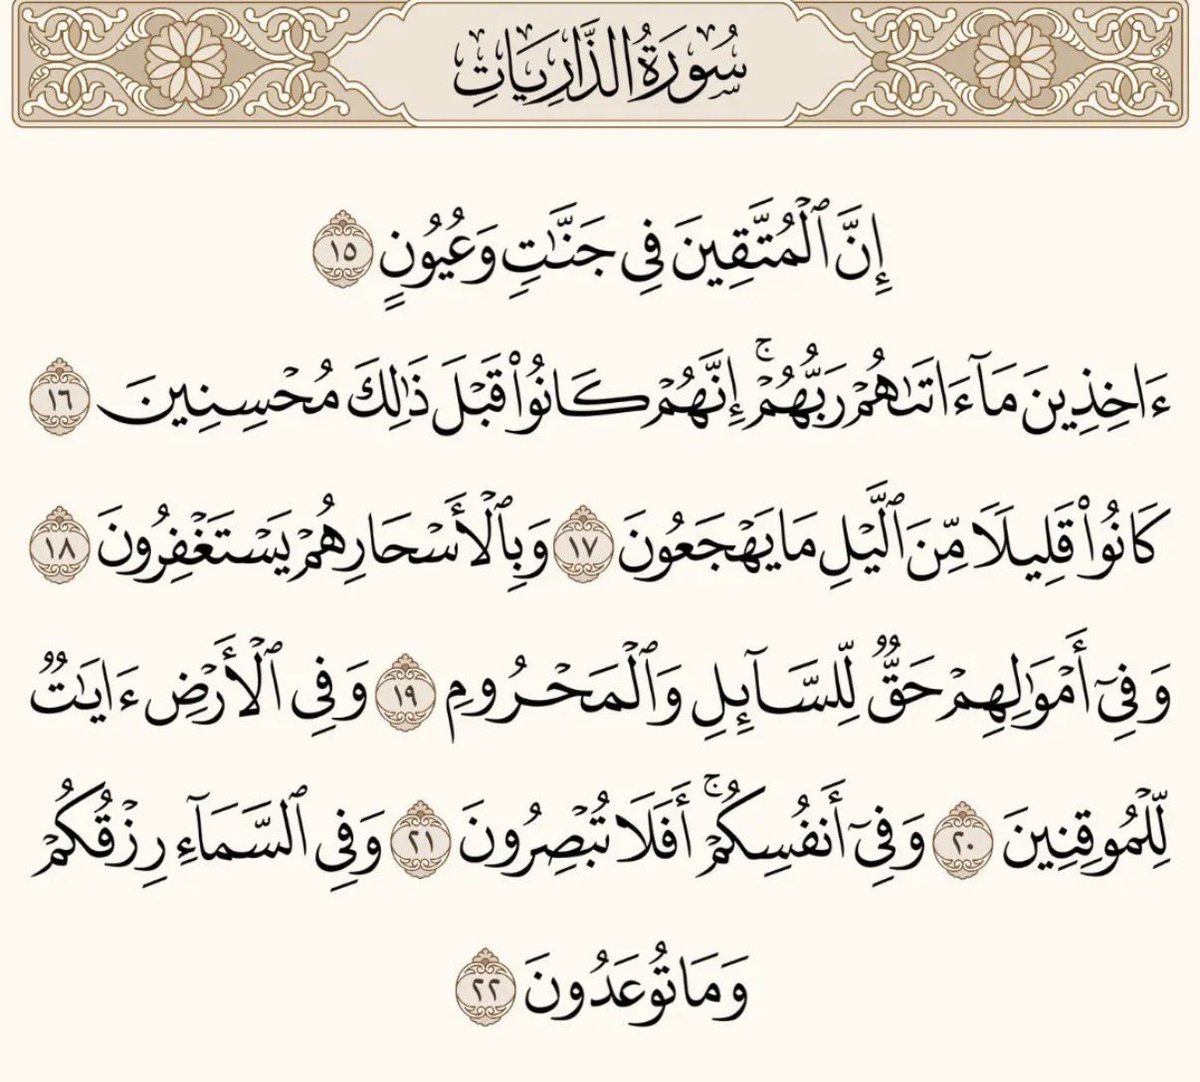 سُورَةُ الذَّارِيَاتِ
إِنَّ ٱلْمُتَّقِينَ فِى جَنَّٰتٍ وَعُيُونٍ ١٥
ءَاخِذِينَ مَآ ءَاتَىٰهُمْ رَبُّهُمْ ۚ إِنَّهُمْ كَانُوا۟ قَبْلَ ذَٰلِكَ مُحْسِنِينَ ١٦
كَانُوا۟ قَلِيلًا مِّنَ ٱلَّيْلِ مَا يَهْجَعُونَ ١٧ وَبِٱلْأَسْحَارِ هُمْ يَسْتَغْفِرُونَ ١٨
وَفِىٓ أَمْوَٰلِهِمْ حَقٌّ لِّلسَّآئِلِ وَٱلْمَحْرُومِ ١٩ وَفِى ٱلْأَرْضِ ءَايَٰتٌ
لِّلْمُوقِنِينَ ٢٠ وَفِىٓ أَنفُسِكُمْ ۚ أَفَلَا تُبْصِرُونَ ٢١ وَفِى ٱلسَّمَآءِ رِزْقُكُمْ
وَمَا تُوعَدُونَ ٢٢